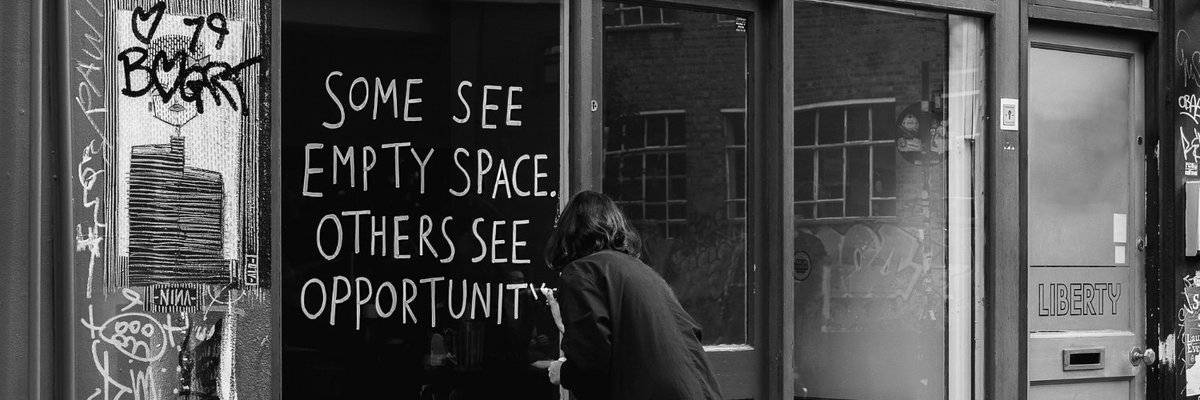 79
BOGART
SOME SEE
EMPTY SPACE.
OTHERS SEE
OPPORTUNIT
-NINA-
LIBERTY